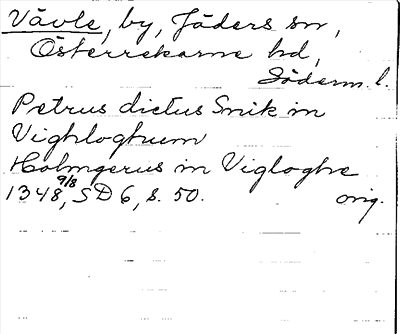 Vävle, by, Jäders sn,
Österrekarne hd,
Söderm. l.
Petrus dictus Snik in
Vighloghum
Holmgerus in Vigloghe
1348 9/8, SD 6, s. 50. orig.